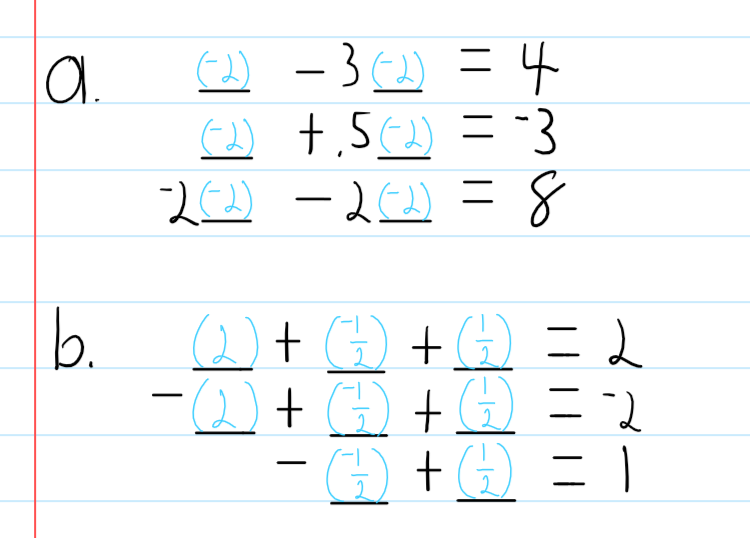 a. (-2) - 3(-2) = 4
(-2) + .5(-2) = -3
-2(-2) - 2(-2) = 8
b. (2) + (-1/2) + (1/2) = 2
-(2) + (-1/2) + (1/2) = -2
-(-1/2) + (1/2) = 1